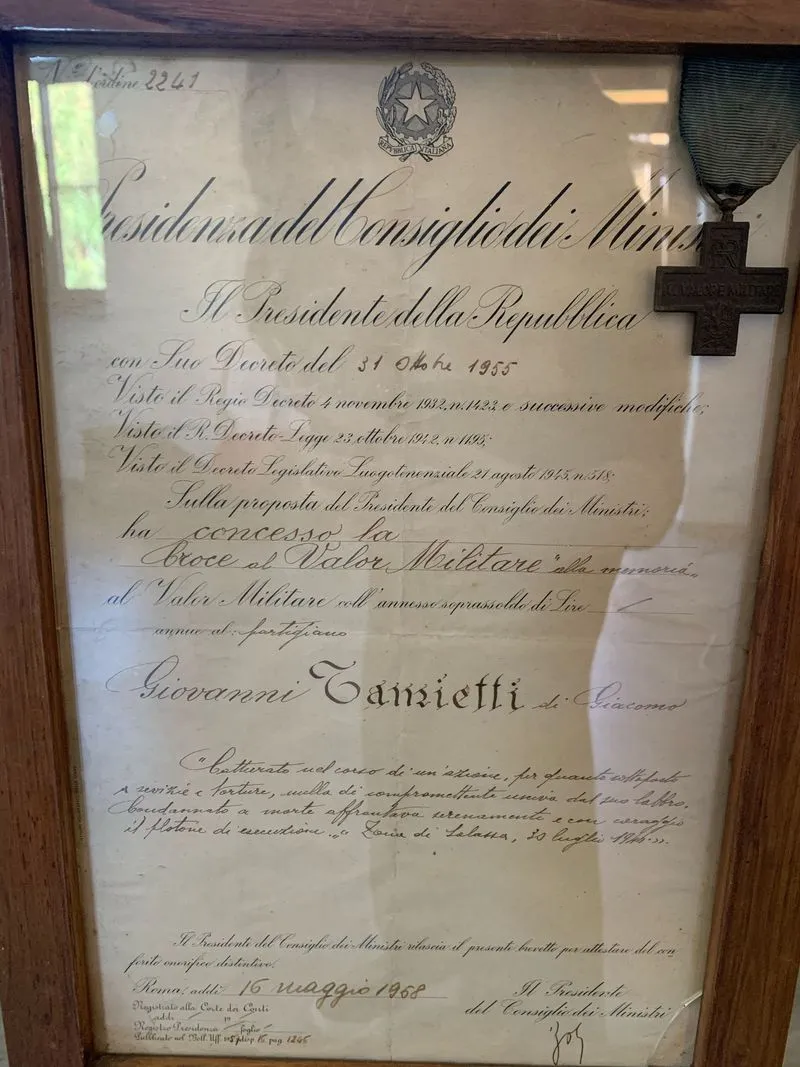 N° d'ordine 2241
REPVBBLICA ITALIANA
Presidenza del Consiglio dei Minis
AL VALORE MILITARE
Il Presidente della Repubblica
con Suo Decreto del 31 Ottobre 1955
Visto il Regio Decreto 4 novembre 1932, n. 1423, e successive modifiche;
Visto il R. Decreto-Legge 23 ottobre 1942, n. 1195;
Visto il Decreto Legislativo Luogotenenziale 21 agosto 1945, n. 518;
Sulla proposta del Presidente del Consiglio dei Ministri;
ha concesso la
Croce al Valor Militare "alla memoria"
al Valor Militare coll'annesso soprassoldo di Lire
annue al: partigiano
Giovanni Tamietti di Giacomo
"Catturato nel corso di un'azione, per quanto sottoposto
a sevizie e torture, nulla di compromettente usciva dal suo labbro.
Condannato a morte affrontava serenamente e con coraggio
il plotone di esecuzione". Zona di Salassa, 30 luglio
Il Presidente del Consiglio dei Ministri rilascia il presente brevetto per attestare del con
ferito onorifico distintivo.
Roma, addì 16 maggio 1968
Il Presidente
del Consiglio dei Ministri
Registrato alla Corte dei Conti
addì
Registro Presidenza foglio
Pubblicato nel Boll. Uff. disp. 16 pag. 1246